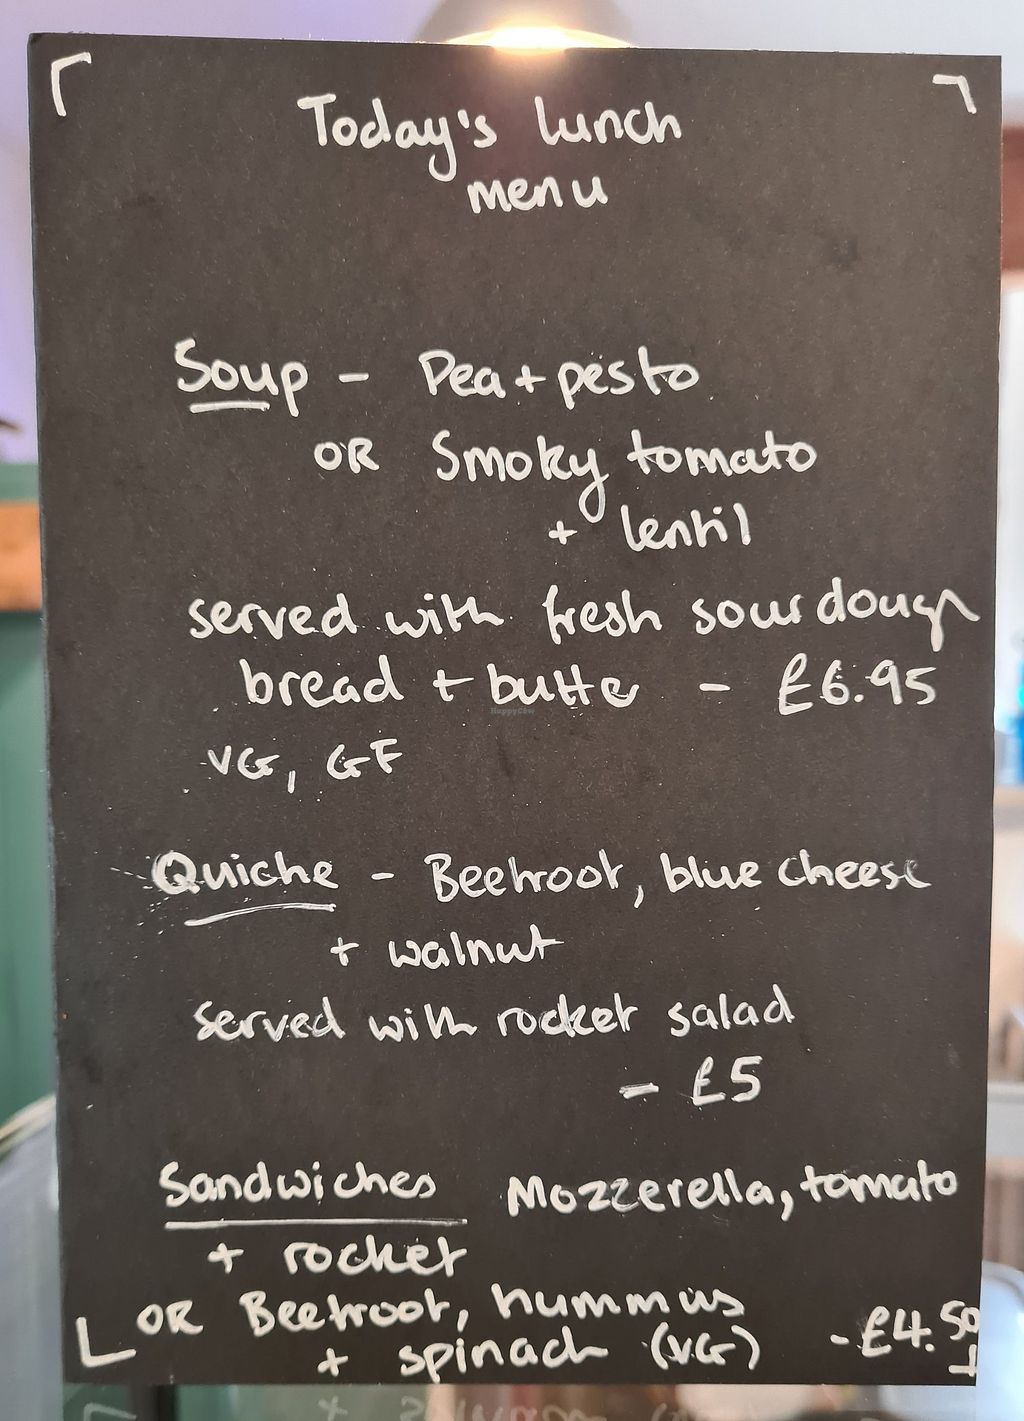 Today's lunch
menu
Soup - Pea + pesto
OR Smoky tomato
+ lentil
served with fresh sourdough
bread + butter - £6.95
VG, GF
Quiche - Beetroot, blue cheese
+ walnut
served with rocket salad
- £5
Sandwiches Mozzerella, tomato
+ rocket
OR Beetroot, hummus
+ spinach (VG) - £4.50
HappyCow